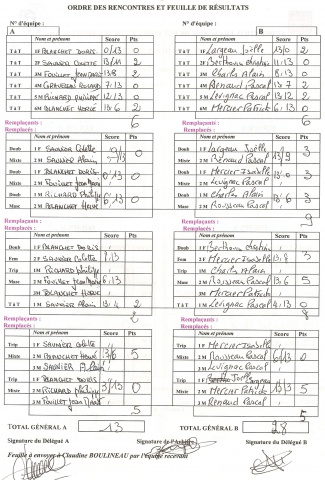 ORDRE DES RENCONTRES ET FEUILLE DE RÉSULTATS
N° d'équipe : N° d'équipe :
A B
Nom et prénom Score Pts Nom et prénom Score Pts
T à T 1F BLANCHET DORIS 0/13 0 T à T 1F Largeau Joëlle 13/0 2
T à T 2F SAUNIER Colette 13/11 2 T à T 2F 11/13 0
T à T 3M FOUILLET 13/8 2 T à T 3M Charles Alain 8/13 0
T à T 4M 7/13 0 T à T 4M Renaud Pascal 13/7 2
T à T 5M RICHARD philippe 12/13 0 T à T 5M Levignac Pascal 13/12 2
T à T 6M BLANCHET HERVÉ 13/6 2 T à T 6M Mercier Patrick 6/13 0
6 6
Remplaçants : Remplaçants :
Remplacés : Remplacés :
Nom et prénom Score Pts Nom et prénom Score Pts
Doub 1F SAUNIER Colette Doub 1F Largeau Joëlle
Mixte 2M SAUNIER Alain 0 Mixte 2M Renaud Pascal 3
Doub 1F BLANCHET DORIS Doub 1F Mercier Isabelle
Mixte 2M 0 Mixte 2M Levignac Pascal 3
Doub 1M RICHARD philippe Doub 1M Charles Alain
Masc 2M BLANCHET HERVÉ 6/13 0 Masc 2M Rousseau Pascal 13/6 3
0 9
Remplaçants : Remplaçants :
Remplacés : Remplacés :
Nom et prénom Score Pts Nom et prénom Score Pts
Doub 1F BLANCHET DORIS Doub 1F
Fem 2F SAUNIER Colette 8/13 Fem 2F Mercier Isabelle 13/8 3
Trip 1M RICHARD philippe Trip 1M Charles Alain
Masc 2M FOUILLET 6/13 Masc 2M Rousseau Pascal 13/6 5
3M BLANCHET HERVÉ 3M Mercier Patrick
T à T 1M SAUNIER Alain 13/4 2 T à T 1M Levignac Pascal 4/13 0
2 8
Remplaçants : Remplaçants :
Remplacés : Remplacés :
Nom et prénom Score Pts Nom et prénom Score Pts
Trip 1F SAUNIER Colette Trip 1F Mercier Isabelle
Mixte 2M BLANCHET HERVÉ 13/6 5 Mixte 2M Rousseau Pascal 6/13 0
3M SAUNIER Alain 3M Levignac Pascal
Trip 1F BLANCHET DORIS Trip 1F Joëlle Largeau
Mixte 2M RICHARD 3/13 0 Mixte 2M Mercier Patrick 13/3 5
3M FOUILLET 3M Renaud Pascal
5 5
TOTAL GÉNÉRAL A 13 TOTAL GÉNÉRAL B 28
Signature du Délégué A Signature de l'Arbitre Signature du Délégué B
Feuille à envoyer à Claudine BOULINEAU par l'équipe recevant